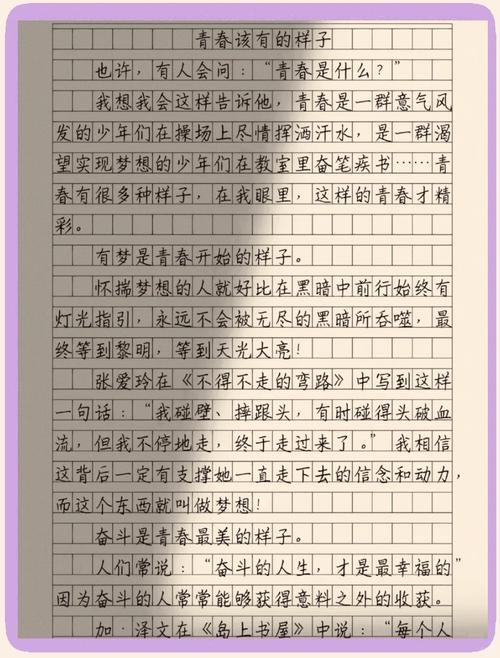 青春该有的样子
也许，有人会问：“青春是什么？”
我想我会这样告诉他，青春是一群意气风
发的少年们在操场上尽情挥洒汗水，是一群渴
望实现梦想的少年们在教室里奋笔疾书……青
春有很多种样子，在我眼里，这样的青春才精
彩。
有梦是青春开始的样子。
怀揣梦想的人就好比在黑暗中前行始终有
灯光指引，永远不会被无尽的黑暗所吞噬，最
终等到黎明，等到天光大亮！
张爱玲在《不得不走的弯路》中写到这样
一句话：“我碰壁、摔跟头，有时碰得头破血
流，但我不停地走，终于走过来了。”我相信
这背后一定有支撑她一直走下去的信念和动力，
而这个东西就叫做梦想！
奋斗是青春最美的样子。
人们常说：“奋斗的人生，才是最幸福的”
因为奋斗的人常常能够获得意料之外的收获。
加·泽文在《岛上书屋》中说：“每个人